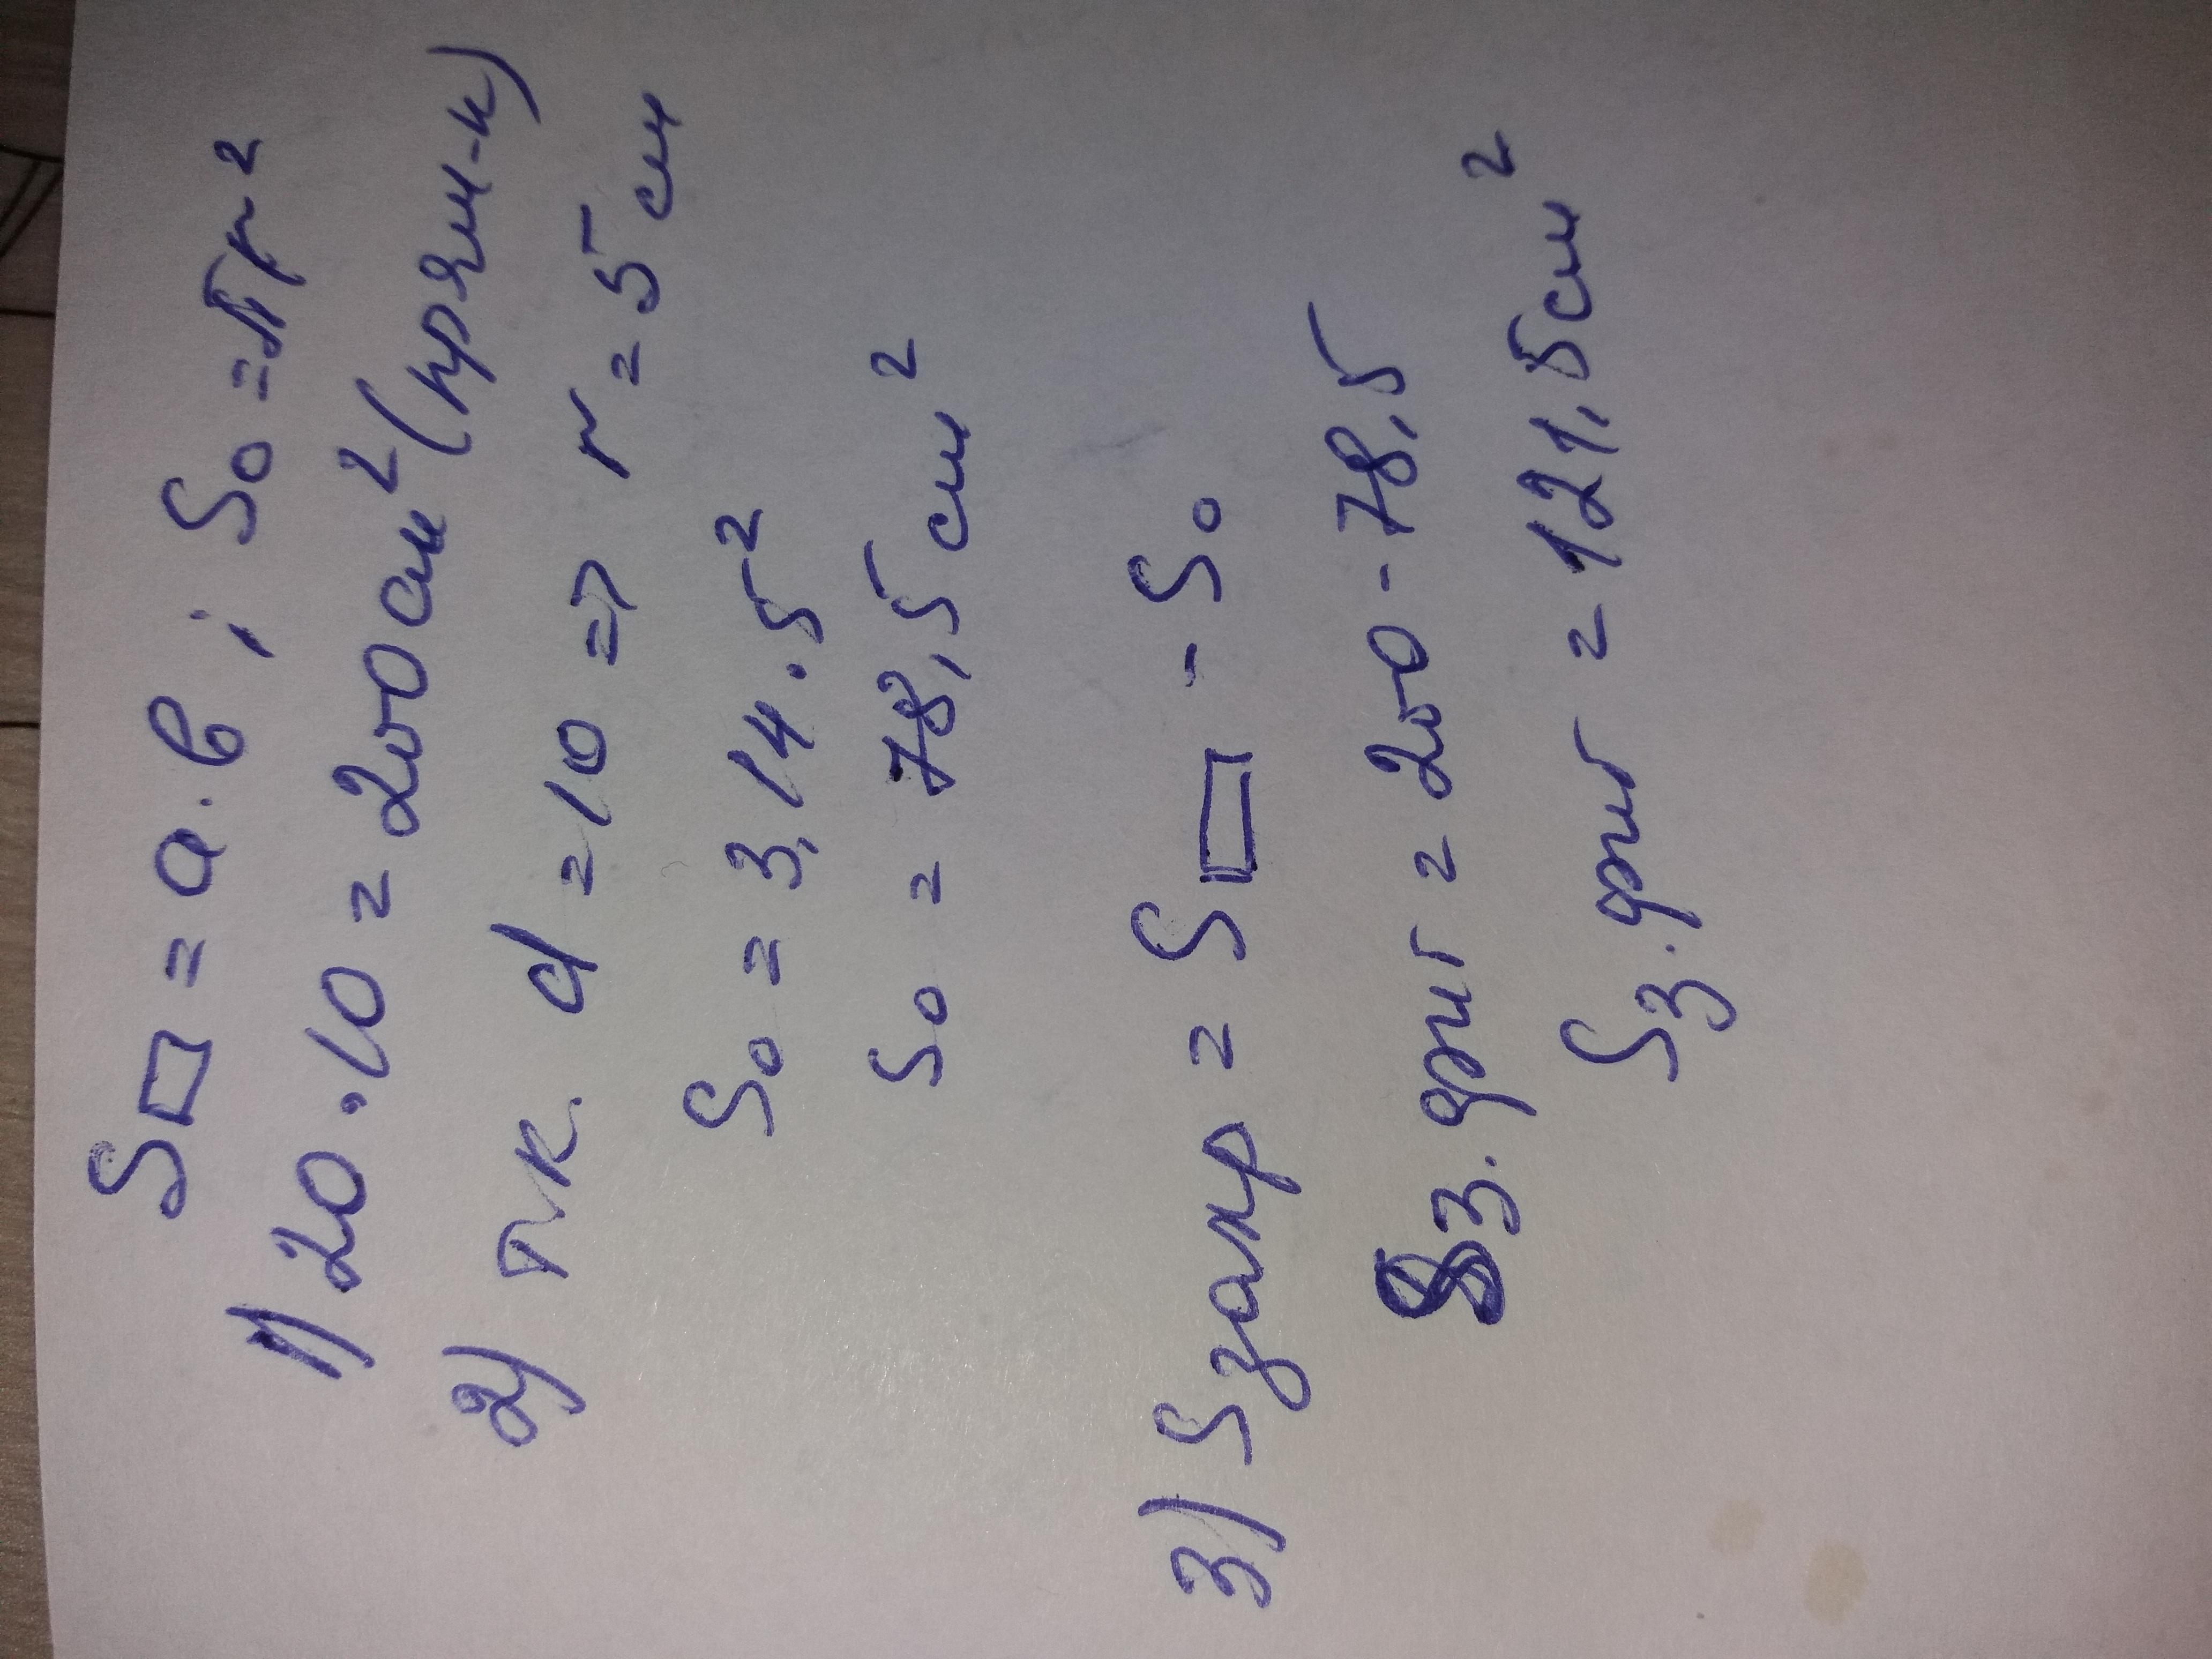 S▭ = a·b ; S₀ = πr²
1) 20·10 = 200см² (прям-к)
2) т.к. d = 10 => r = 5 см
S₀ = 3,14·5²
S₀ = 78,5 см²
3) Sзакр = S▭ - S₀
Sз.фиг = 200 - 78,5
Sз.фиг = 121,5см²